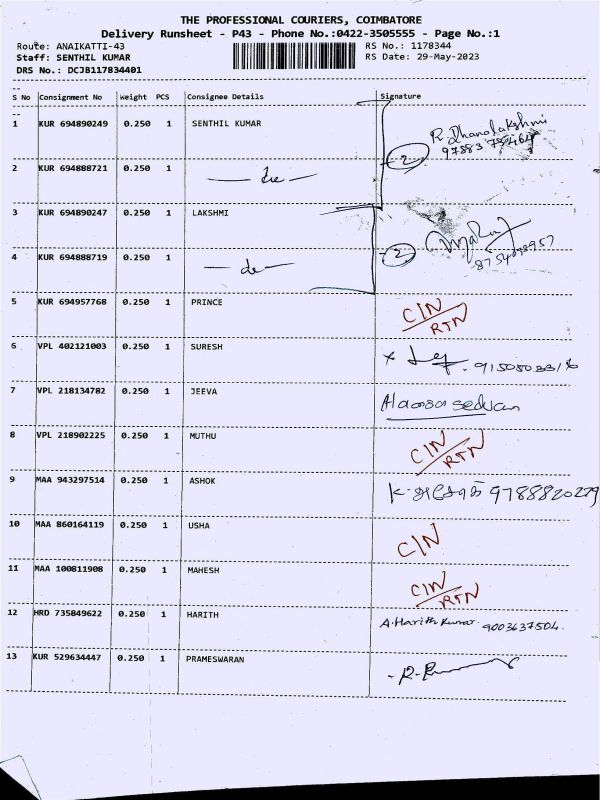 THE PROFESSIONAL COURIERS, COIMBATORE
Delivery Runsheet - P43 - Phone No.:0422-3505555 - Page No.:1
Route: ANAIKATTI-43 RS No.: 1178344
Staff: SENTHIL KUMAR RS Date: 29-May-2023
DRS No.: DCJB117834401
S No Consignment No Weight PCS Consignee Details Signature
1 KUR 694890249 0.250 1 SENTHIL KUMAR R Dhanalakshmi
2 KUR 694888721 0.250 1 2
3 KUR 694890247 0.250 1 LAKSHMI
4 KUR 694888719 0.250 1 2
5 KUR 694957768 0.250 1 PRINCE C/N RTN
6 VPL 402121003 0.250 1 SURESH
7 VPL 218134782 0.250 1 JEEVA
8 VPL 218902225 0.250 1 MUTHU C/N RTN
9 MAA 943297514 0.250 1 ASHOK K. அசோக் 9788820279
10 MAA 860164119 0.250 1 USHA C/N
11 MAA 100811908 0.250 1 MAHESH C/N RTN
12 HRD 735849622 0.250 1 HARITH A.Harith Kumar 9003637504.
13 KUR 529634447 0.250 1 PRAMESWARAN